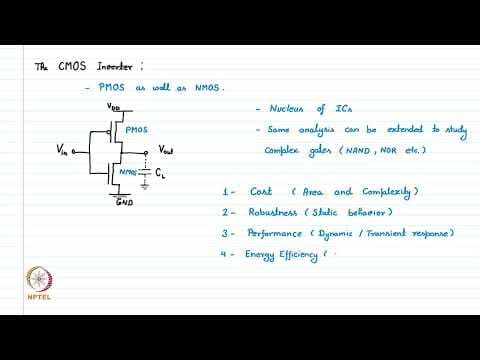 The CMOS Inverter :
- PMOS as well as NMOS.
VDD
PMOS
Vin
Vout
NMOS
CL
GND
- Nucleus of ICs
- Same analysis can be extended to study
complex gates (NAND, NOR etc.)
1 - Cost (Area and Complexity)
2 - Robustness (Static behavior)
3 - Performance (Dynamic / Transient response)
4 - Energy Efficiency (
NPTEL